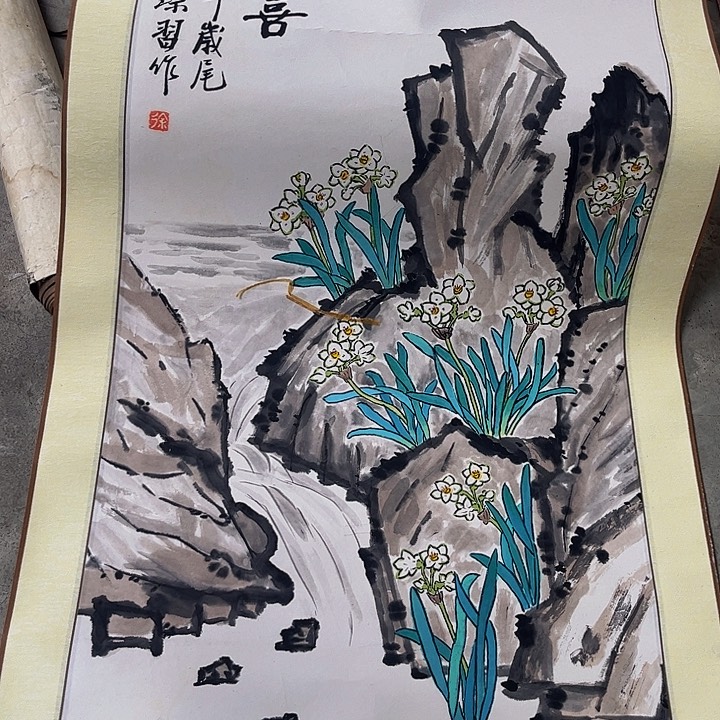 喜
歲尾
習作
徐